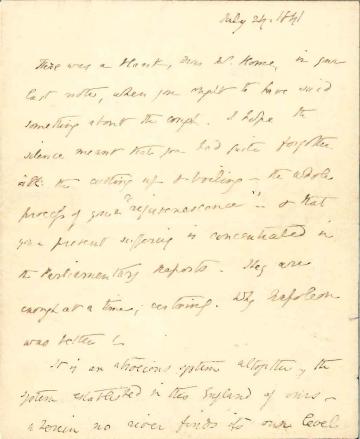 July 24. 1841
There was a blank, dear Mr. Horne, in your
last note, when you ought to have said
something about the cough. I hope the
silence meant that you had quite forgotten
it & the cutting up & boiling - the whole
process of your "rejuvenescence" - & that
your present suffering is concentrated in
the Parliamentary Reports. They are
enough at a time, certainly. Why Napoleon
was better!
It is an atrocious system altogether, the
system established in this England of ours -
wherein no river finds its own level